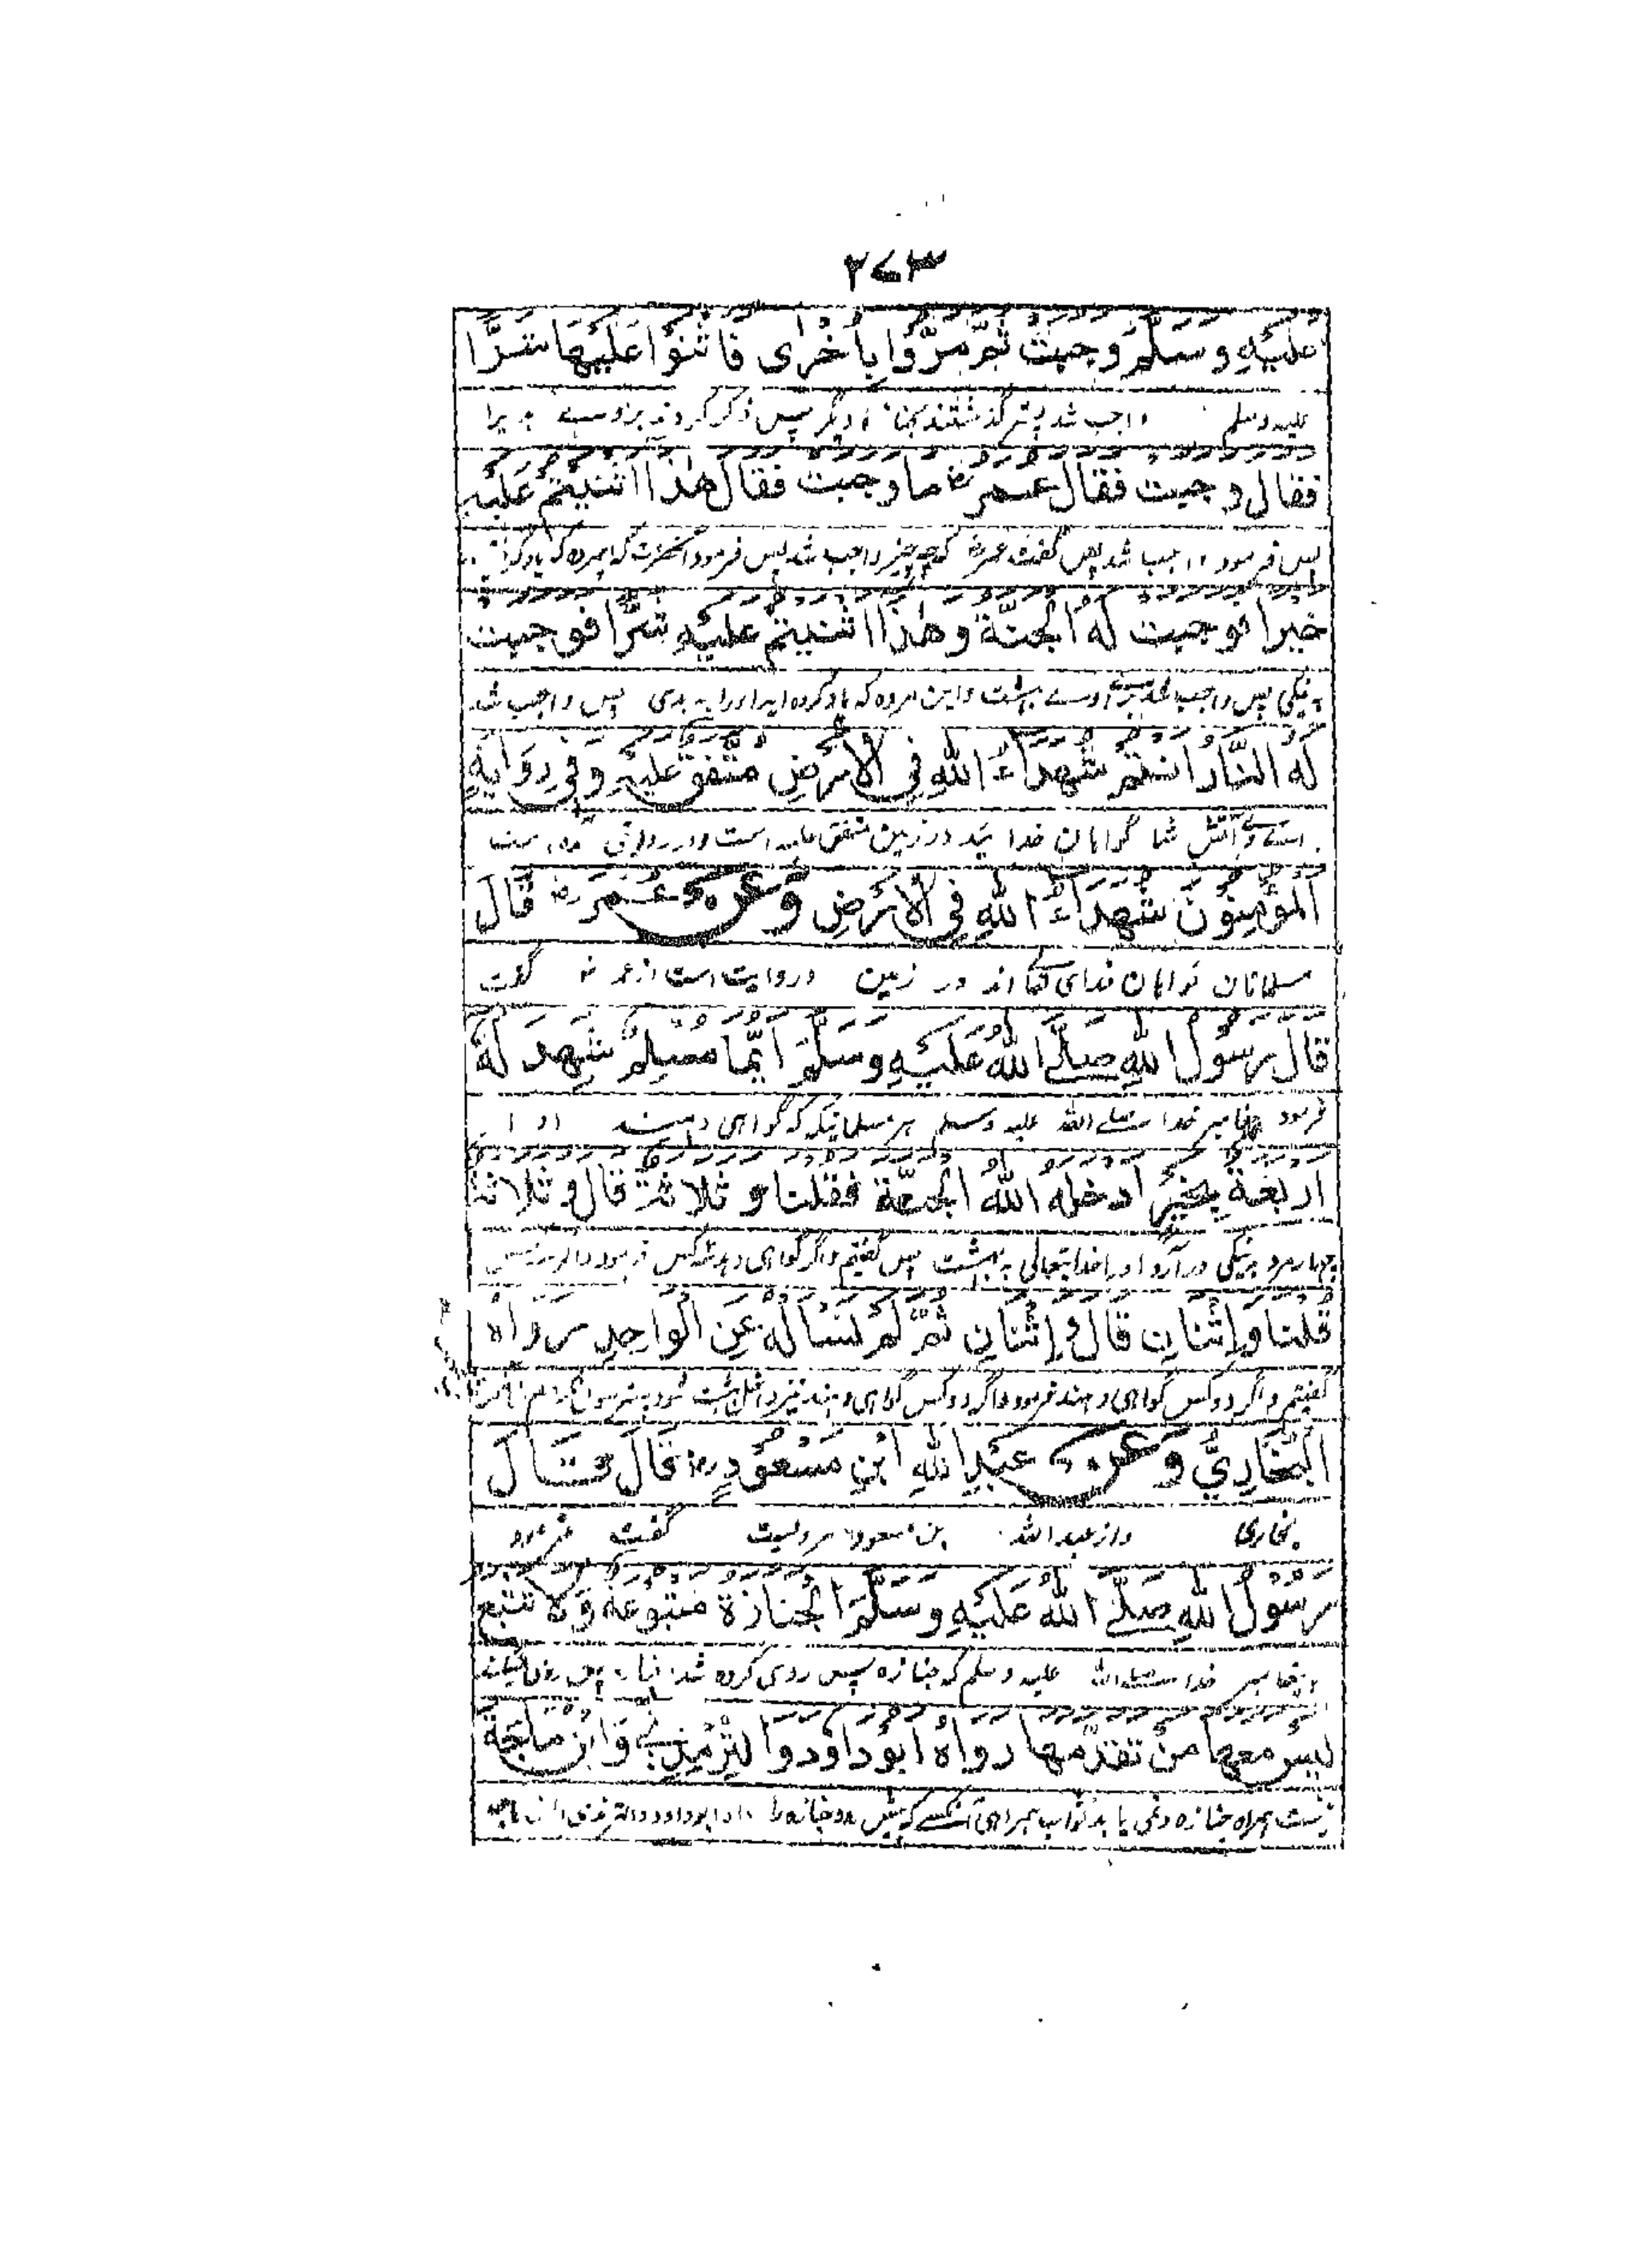 ٢٧٣
عَلَيْهِ وَسَلَّمَ وَجَبَتْ ثُمَّ مَرُّوا بِأُخْرٰى فَاثْنَوْا عَلَيْهَا شَرًّا
علیه وسلم واجب شد پستر گذشتند بجنازه دیگر پس ذکر کردند بروسے
فقال وجبت فقال عمر رض ما وجبت فقال هٰذا اثنيتم عليه
پس فرمود واجب شد پس گفت عمر رض که چه چیز واجب شد پس فرمود آنحضرت که
خيرا فوجبت له الجنّة وهٰذا اثنيتم عليه شرًّا فوجبت
به نیکی پس واجب بهشت واین مرده که یاد کرده اید اورا به بدی پس واجب شد
لَهُ النَّارُ اَنْتُمْ شُهَدَاءُ اللهِ فِي الْاَرْضِ مُتَّفَقٌ عَلَيْهِ وَفِي رِوَايَةٍ
آتش شما گواهان خدا ئید در زمین متفق علیه است ودر روایتی
اَلْمُؤْمِنُوْنَ شُهَدَاءُ اللهِ فِي الْاَرْضِ وَعَنْ عُمَرَ رض قَالَ
مسلمانان گواهان خدای اند در زمین وروایت است از عمر رض گفت
قَالَ رَسُوْلُ اللهِ صَلَّے اللهُ عَلَيْهِ وَسَلَّمَ اَيُّمَا مُسْلِمٌ شَهِدَ لَهُ
فرمود پیغامبر خدا صلے الله علیه وسلم هر مسلمانیکه گواهی دهند او را
اربعة بخير ادخله الله الجنّة فقلنا و ثلاثة قال و ثلاثة
چهار مرد به نیکی درآرد اورا خدایتعالی به بهشت پس گفتیم واگر گواهی دهند سه کس فرمود
قُلْنَا وَاِثْنَانِ قَالَ وَ اِثْنَانِ ثُمَّ لَمْ نَسْاَلْهُ عَنِ الْوَاحِدِ رَوَاهُ
گفتیم واگر دو کس گواهی دهند فرمود واگر دو کس گواهی دهند نیز داخل بهشت شود
الْبُخَارِيُّ وَعَنْ عَبْدِ اللهِ ابْنِ مَسْعُوْدٍ رض قَالَ قَالَ
بخاری واز عبد الله بن مسعود مرویست گفت فرمود
رَسُوْلُ اللهِ صَلَّے اللهُ عَلَيْهِ وَسَلَّمَ الْجنازة متبوعة وَلَا تتبع
پیغامبر خدا صلے الله علیه وسلم که جنازه پس روی کرده شد
لَيْسَ معها من تقدّمها رواه ابو داؤد و التِّرْمِذِيُّ وَابْنُ مَاجَة
نیست همراه جنازه ونمی یابد ثواب همراهی آنکسے که پیش رود جنازه را ابو داود والترمذی ابن ماجه